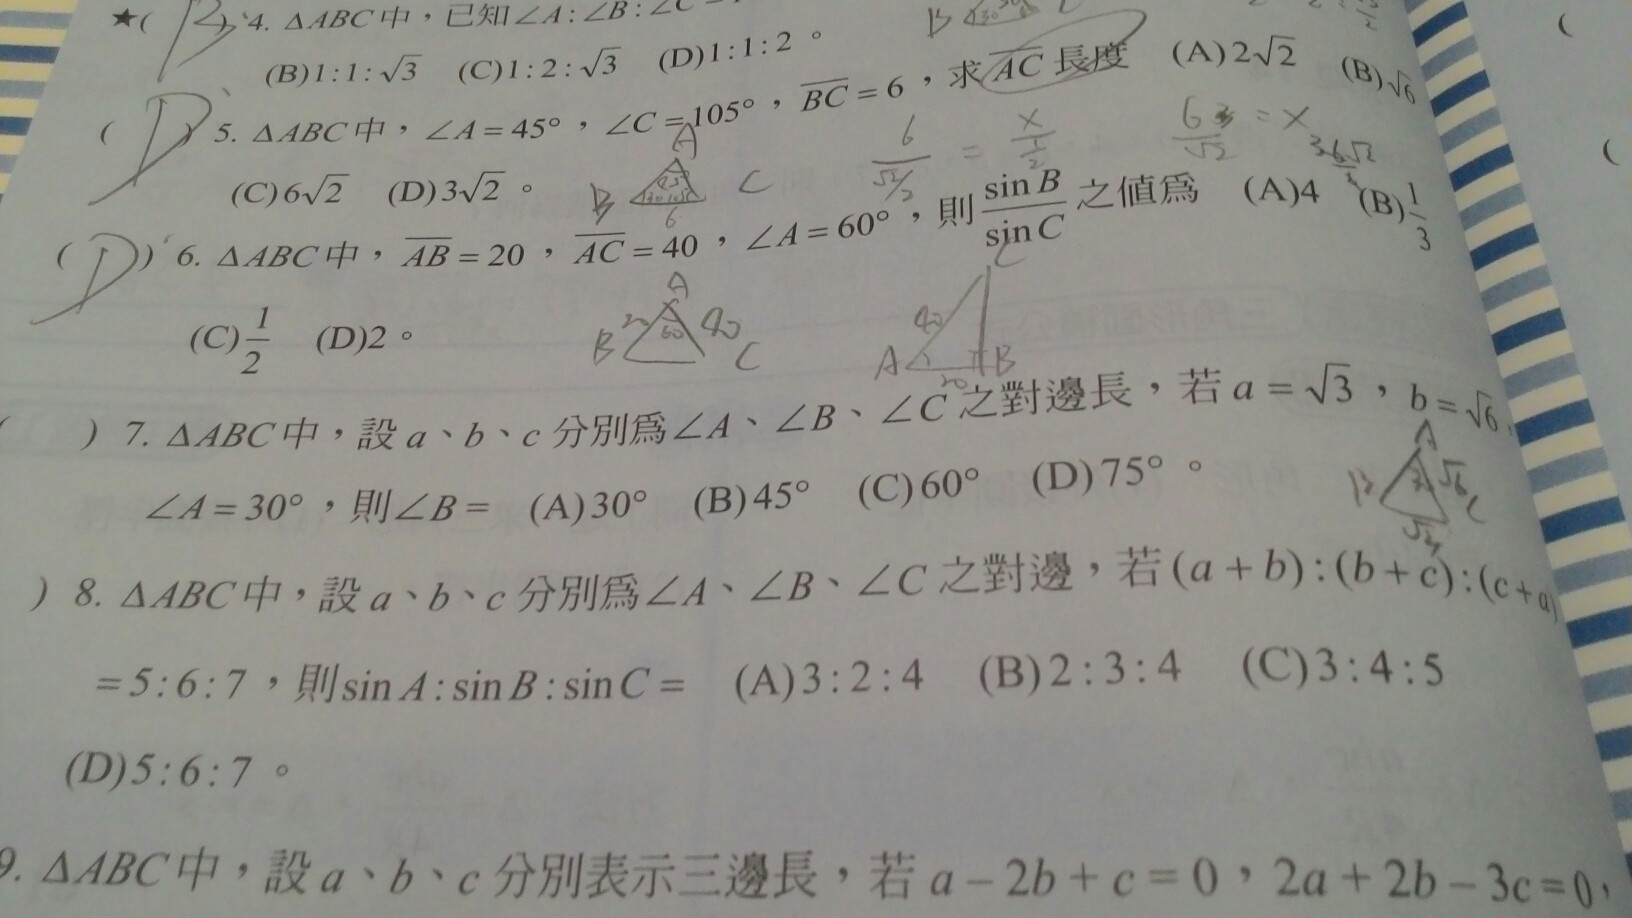 ★( B ) 4. △ABC 中，已知∠A:∠B:∠C
(B)1:1:√3 (C)1:2:√3 (D)1:1:2。
( D ) 5. △ABC 中，∠A=45°，∠C=105°，BC=6，求AC長度 (A)2√2 (B)√6
(C)6√2 (D)3√2。
A
B
C
6
6/(√2/2) = x/(1/2)
6/√2 = x
( D ) 6. △ABC 中，AB=20，AC=40，∠A=60°，則 sin B/sin C 之值爲 (A)4 (B)1/3
(C)1/2 (D)2。
A
B 20 60 40 C
C
40
A B
20
( ) 7. △ABC 中，設 a、b、c 分別爲∠A、∠B、∠C 之對邊長，若 a=√3，b=√6，
∠A=30°，則∠B= (A)30° (B)45° (C)60° (D)75°。
A
B √6 C
) 8. △ABC 中，設 a、b、c 分別爲∠A、∠B、∠C 之對邊，若(a+b):(b+c):(c+a)
=5:6:7，則sin A:sin B:sin C= (A)3:2:4 (B)2:3:4 (C)3:4:5
(D)5:6:7。
9. △ABC 中，設 a、b、c 分別表示三邊長，若 a-2b+c=0，2a+2b-3c=0，